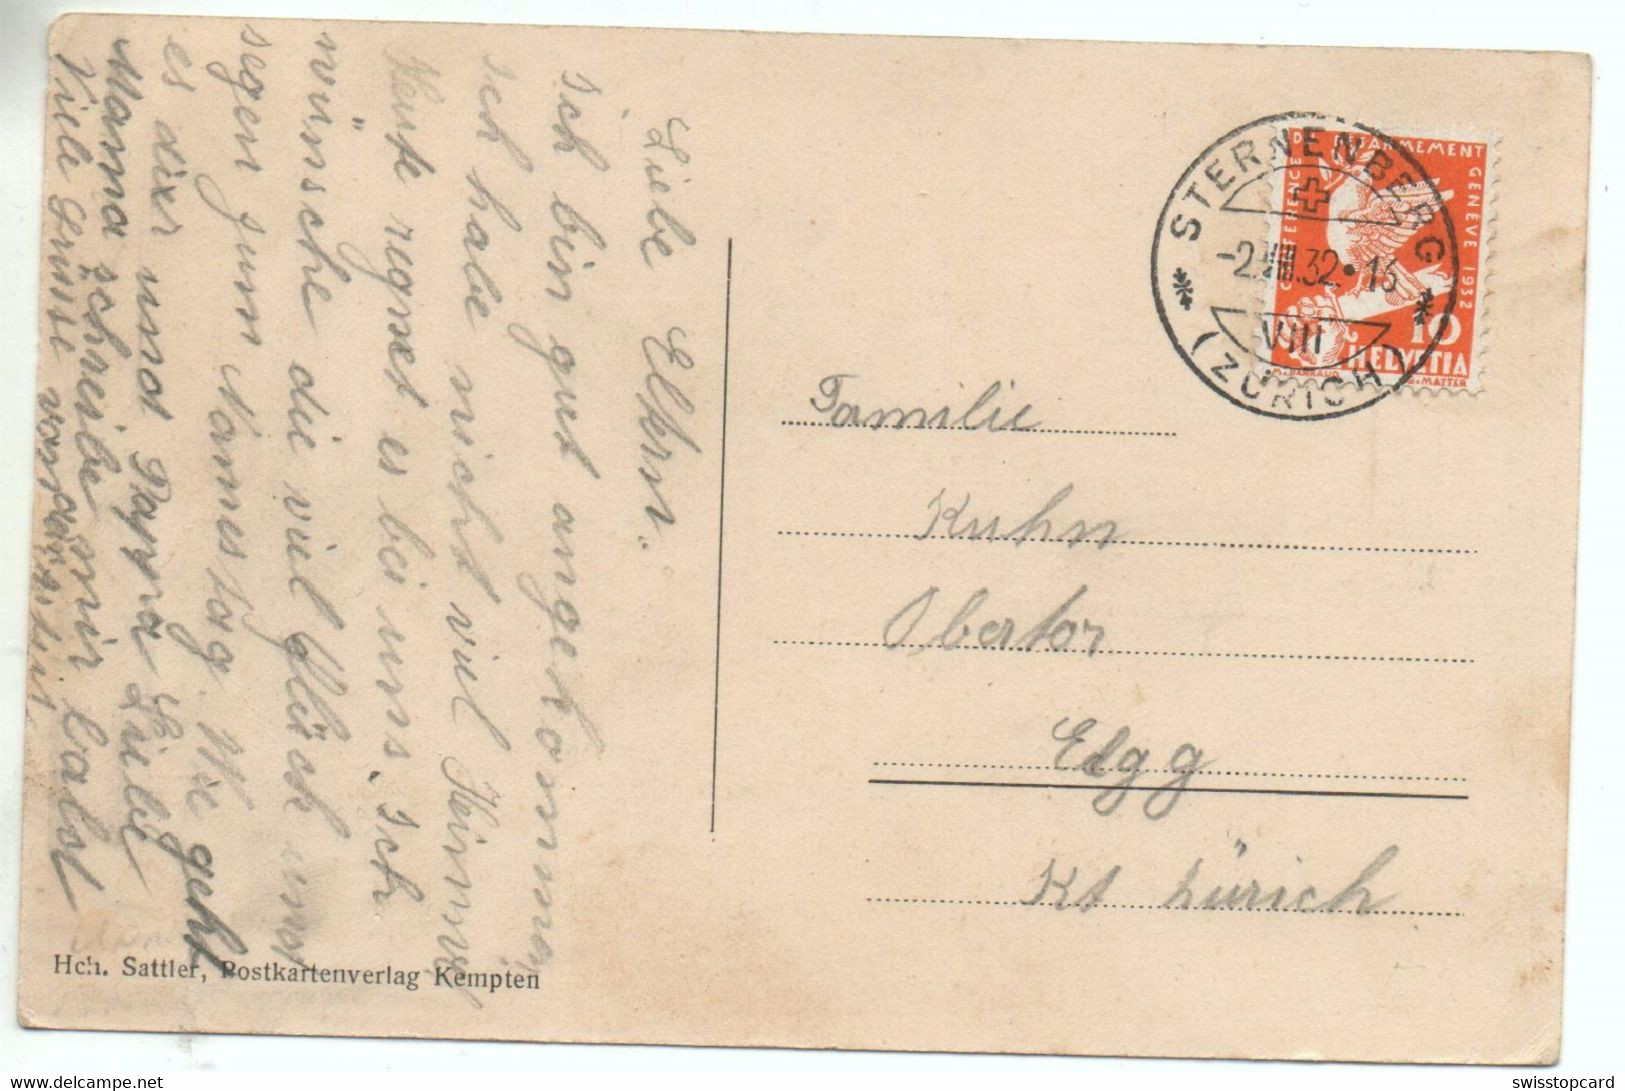 Liebe Eltern.
Ich bin gut angekommen
Ich habe nicht viel Heimweh
Heute regnet es bei uns. Ich
wünsche dir viel Glück und
segen zum Namesstag. Wie geht
es dier und Pappa Liebe
Mama schreibe mir bald
Viele Grüsse von
STERNENBERG
-2.VIII.32.16
VIII
(ZÜRICH)
CONFERENCE DU DESARMEMENT GENEVE 1932
10
HELVETIA
Familie
Kuhn
Obertor
Elgg
Kt Zürich
Hch. Sattler, Postkartenverlag Kempten
swisstopcard